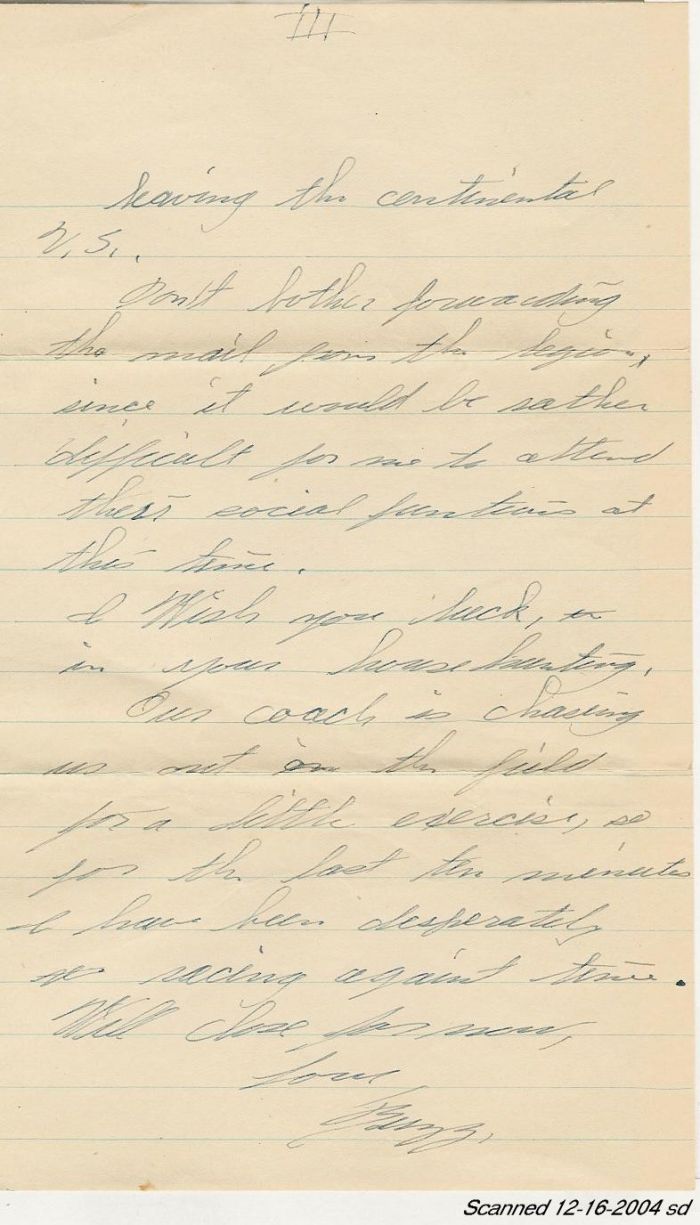 III
leaving the continental
U.S..
Don't bother forwarding
the mail from the legion,
since it would be rather
difficult for me to attend
their social functions at
this time.
I Wish you luck,
in your househunting.
Our coach is chasing
us out on the field
for a little exercise, so
for the last ten minutes
I have been desperately
racing against time.
Will close for now,
Love
Buzz.
Scanned 12-16-2004 sd